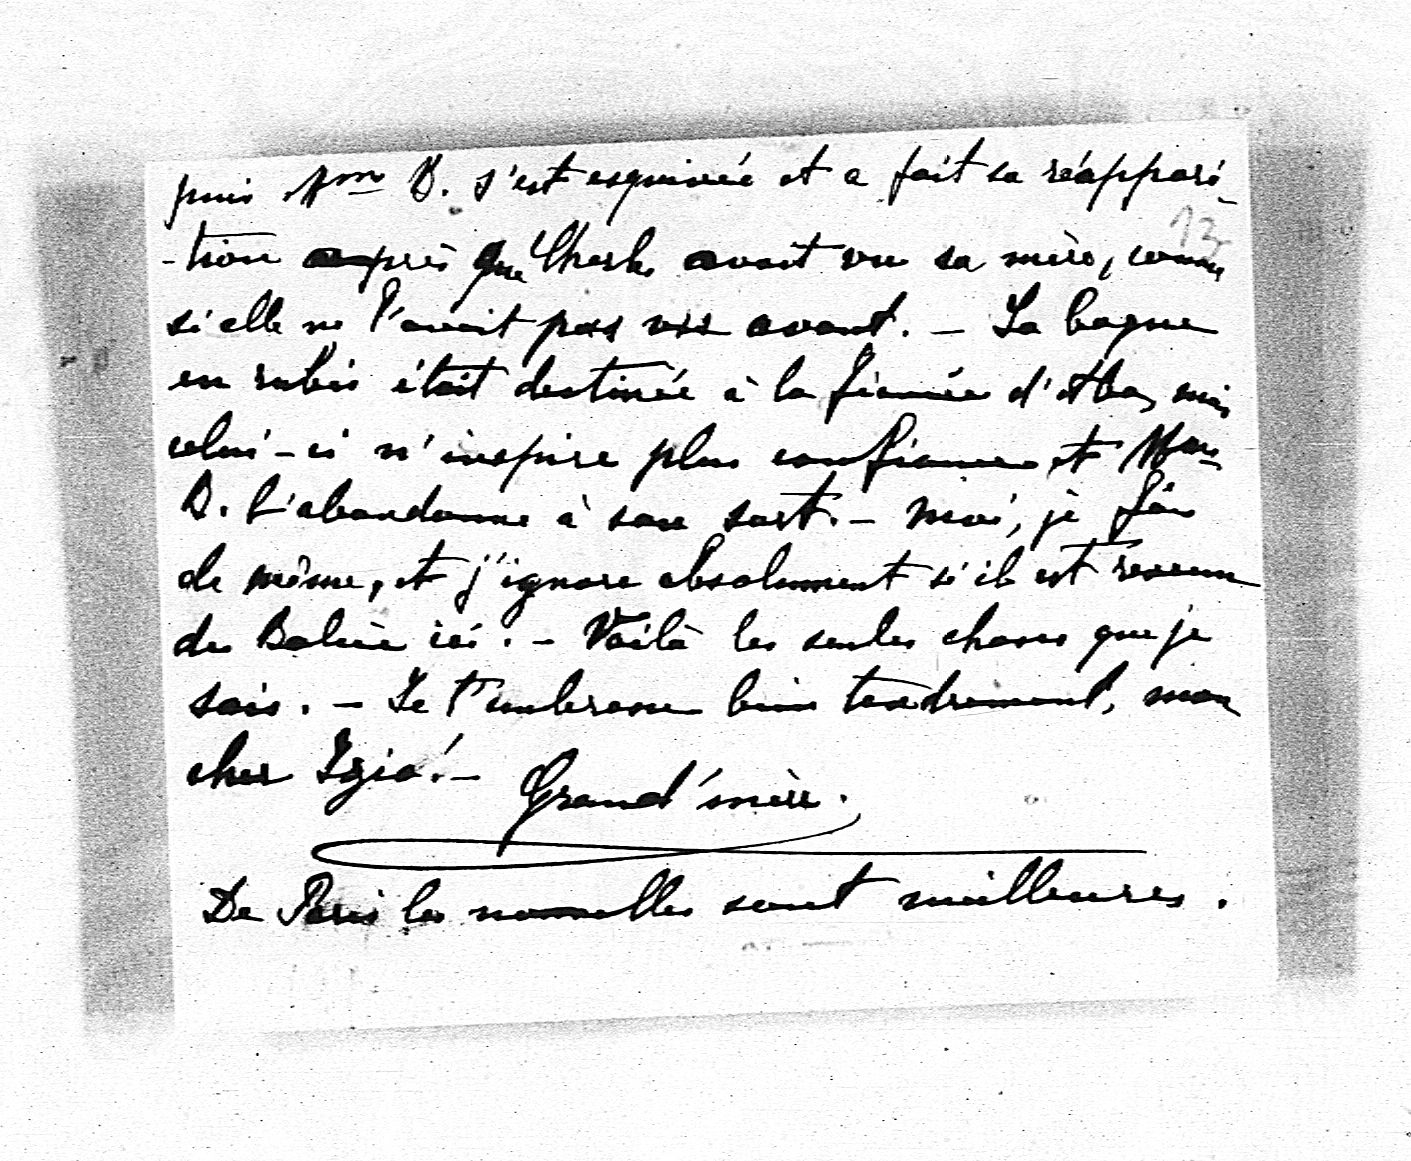 puis Mme D. s'est esquivée et a fait sa réappari-
-tion après que Charles avait vu sa mère, comme
si elle ne l'avait pas vu avant. – La bague
en rubis était destinée à la fiancée d'Aba, mais
celui-ci n'inspire plus confiance et Mme
D. l'abandonne à son sort. – Moi, je fais
de même, et j'ignore absolument si il est revenu
de ici. – Voilà les seules choses que je
sais. – Je t'embrasse bien tendrement, mon
cher Igio! –
Grand'mère.
De Paris les nouvelles sont meilleures.
13